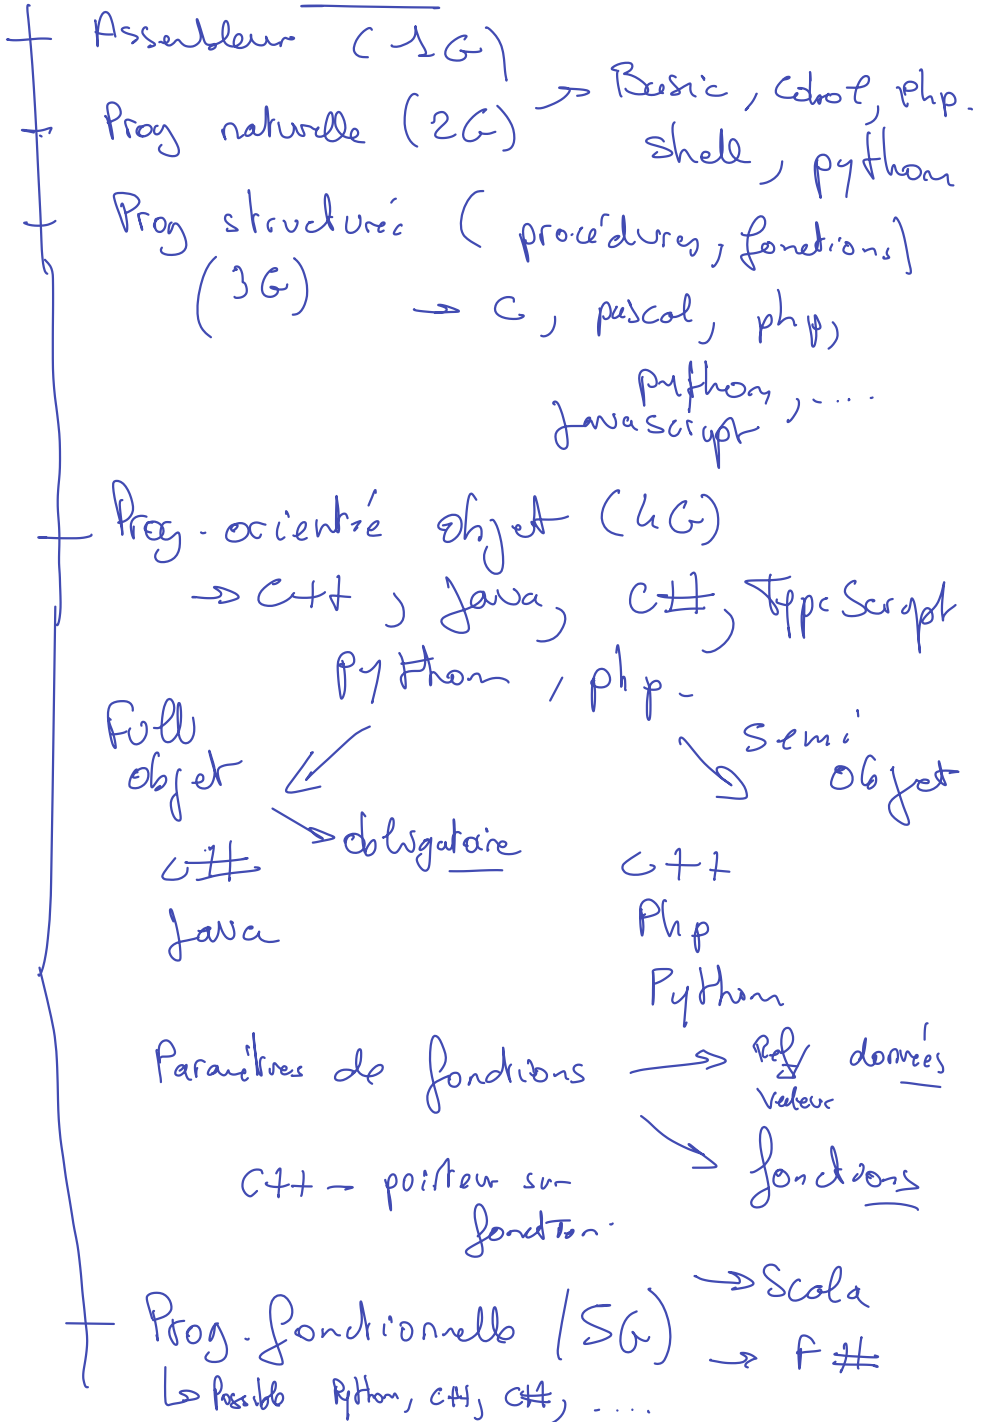 Assembleur (1G)
Prog naturelle (2G) → Basic, Cobol, php.
shell, python
Prog structurée (procédures, fonctions)
(3G) → C, pascal, php,
python, ....
Javascript
Prog. orientée objet (4G)
→ C++, Java, C#, TypeScript
Python, php.
Full objet
Semi objet
→ obligatoire
C#
C++
Java
Php
Python
Paramètres de fonctions → Ref/ valeur données
→ fonctions
C++ - pointeur sur
fonction.
→ Scala
Prog. fonctionnelle (5G)
→ F#
↳ Possible Python, C++, C#, ....